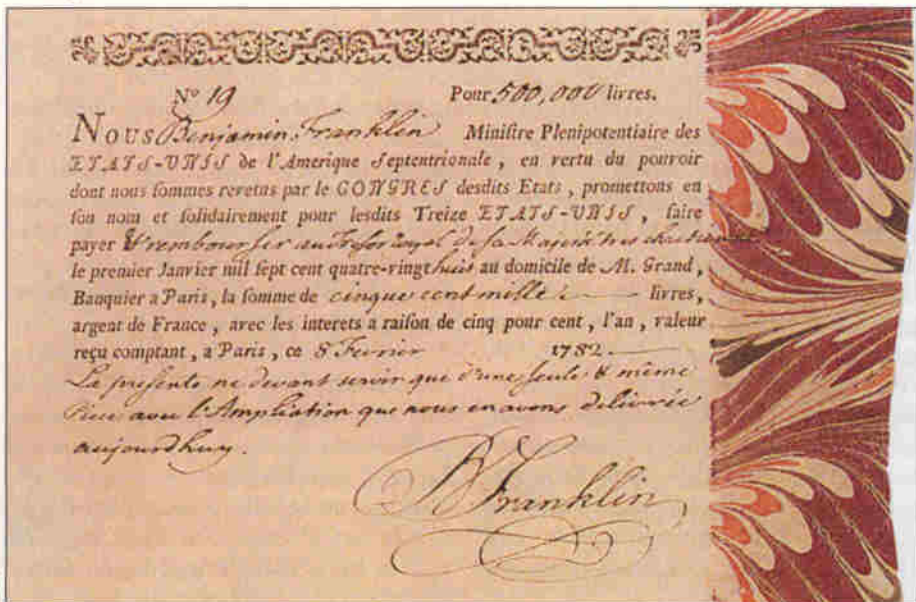 Nº 19 Pour 500,000 livres.
NOUS Benjamin Franklin Ministre Plenipotentiaire des
ETATS-UNIS de l'Amerique Septentrionale, en vertu du pouvoir
dont nous sommes revetus par le CONGRES desdits Etats, promettons en
son nom et solidairement pour lesdits Treize ETATS-UNIS, faire
payer & rembourser au Tresor royal de sa Majesté tres chretienne
le premier Janvier mil sept cent quatre-vingt huit au domicile de M. Grand,
Banquier a Paris, la somme de cinque cent mille livres,
argent de France, avec les interets a raison de cinq pour cent, l'an, valeur
reçu comptant, a Paris, ce 8 Fevrier 1782
La presente ne devant servir que d'une seule & même
Piece avec l'Ampliation que nous en avons delivrée
aujourdhuy.
B Franklin